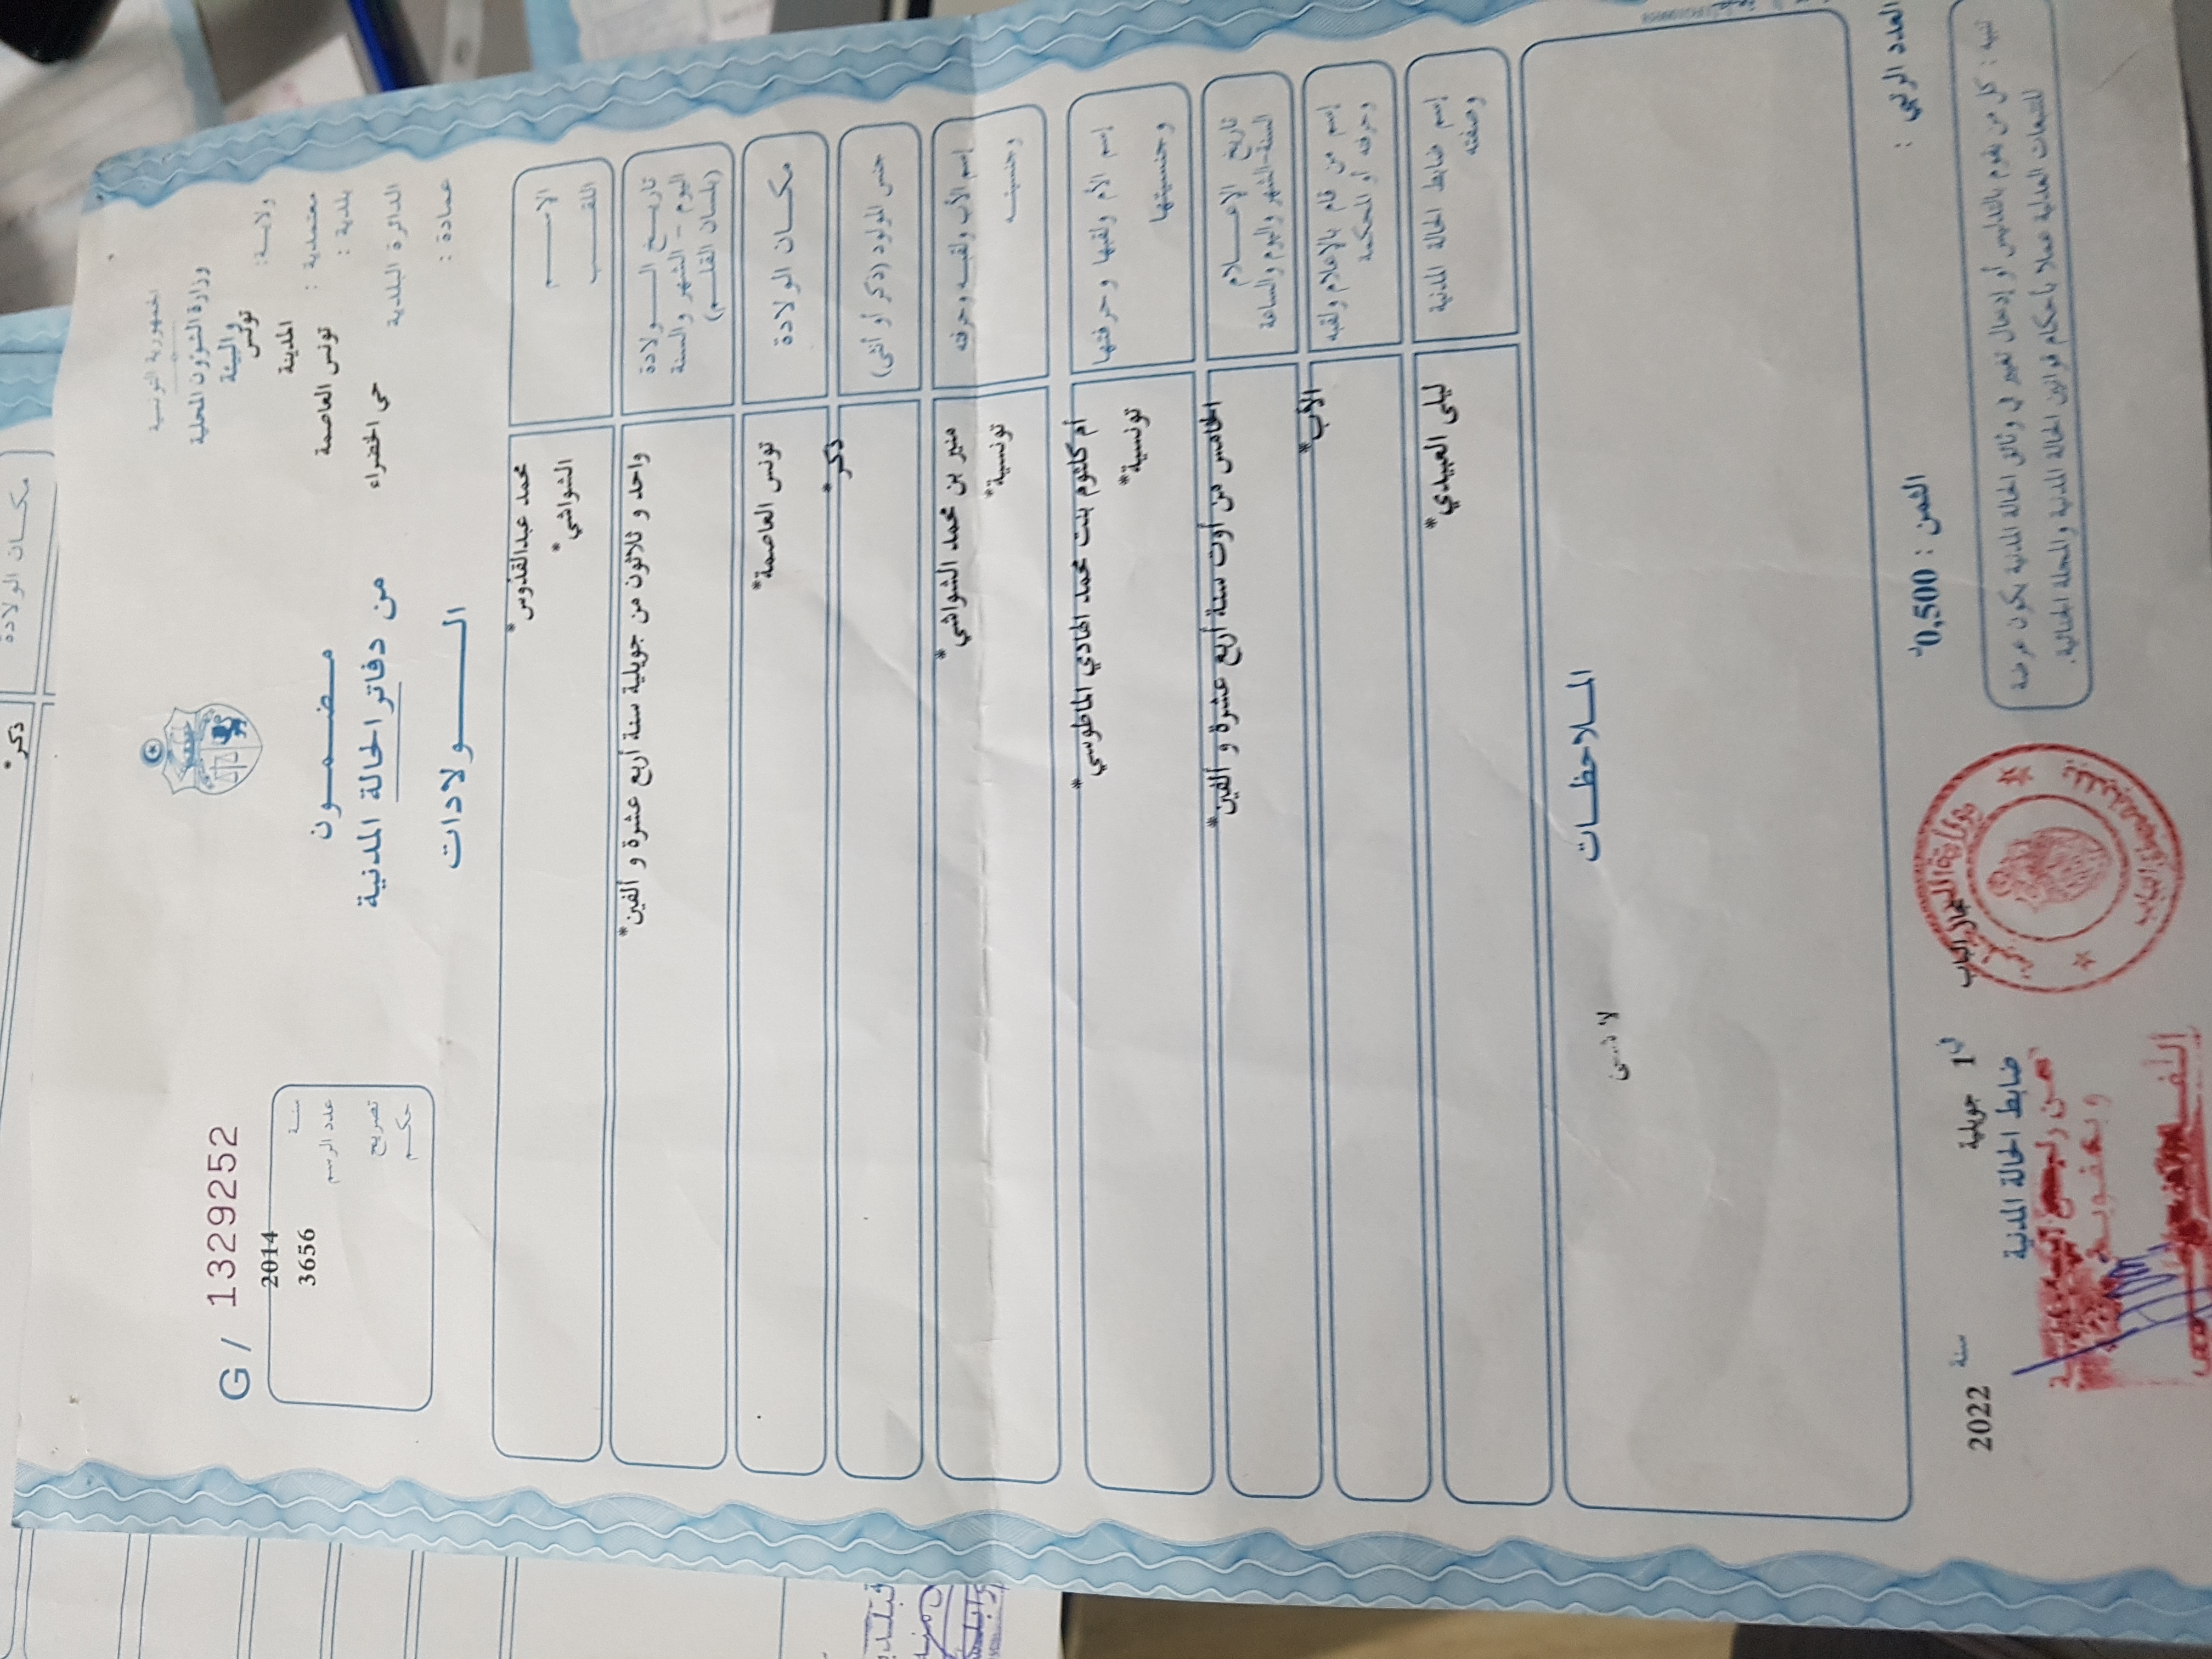 الجمهورية التونسية
وزارة الشؤون المحلية
والبيئة
ولاية: تونس
معتمدية : المدينة
بلدية : تونس العاصمة
الدائرة البلدية حي الخضراء
عمادة :
مضمون
من دفاتر الحالة المدنية
الولادات
G / 13292252
سنة 2014
عدد الرسم 3656
تصريح
حكم
الاسم محمد عبدالقدوس*
اللقب الشواشي*
تاريخ الولادة
اليوم - الشهر والسنة
(بلسان القلم)
واحد و ثلاثون من جويلية سنة أربع عشرة و ألفين*
مكان الولادة تونس العاصمة*
جنس المولود (ذكر أو أنثى) ذكر*
إسم الأب ولقبه وحرفته منير بن محمد الشواشي*
وجنسيته تونسية*
إسم الأم ولقبها وحرفتها أم كلثوم بنت محمد الهادي الماطوسي*
وجنسيتها تونسية*
تاريخ الإعلام
السنة-الشهر واليوم والساعة
الخامس من أوت سنة أربع عشرة و ألفين*
إسم من قام بالإعلام ولقبه
وحرفته أو المحكمة
الأب*
إسم ضابط الحالة المدنية
وصفته
ليلى العبيدي*
الملاحظات
لا شيئ
العدد الرتبي :
الثمن : 0,500د
مجاز الباب في 1 جويلية سنة 2022
ضابط الحالة المدنية
تنبيه : كل من يقوم بالتدليس أو إدخال تغيير في وثائق الحالة المدنية يكون عرضة
للتتبعات العدلية عملا بأحكام قوانين الحالة المدنية والمجلة الجنائية.
مكان الولادة
ذكر*